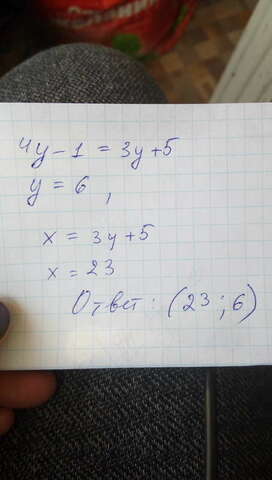 4y-1 = 3y+5
y = 6 ,
x = 3y+5
x = 23
Ответ: (23; 6)